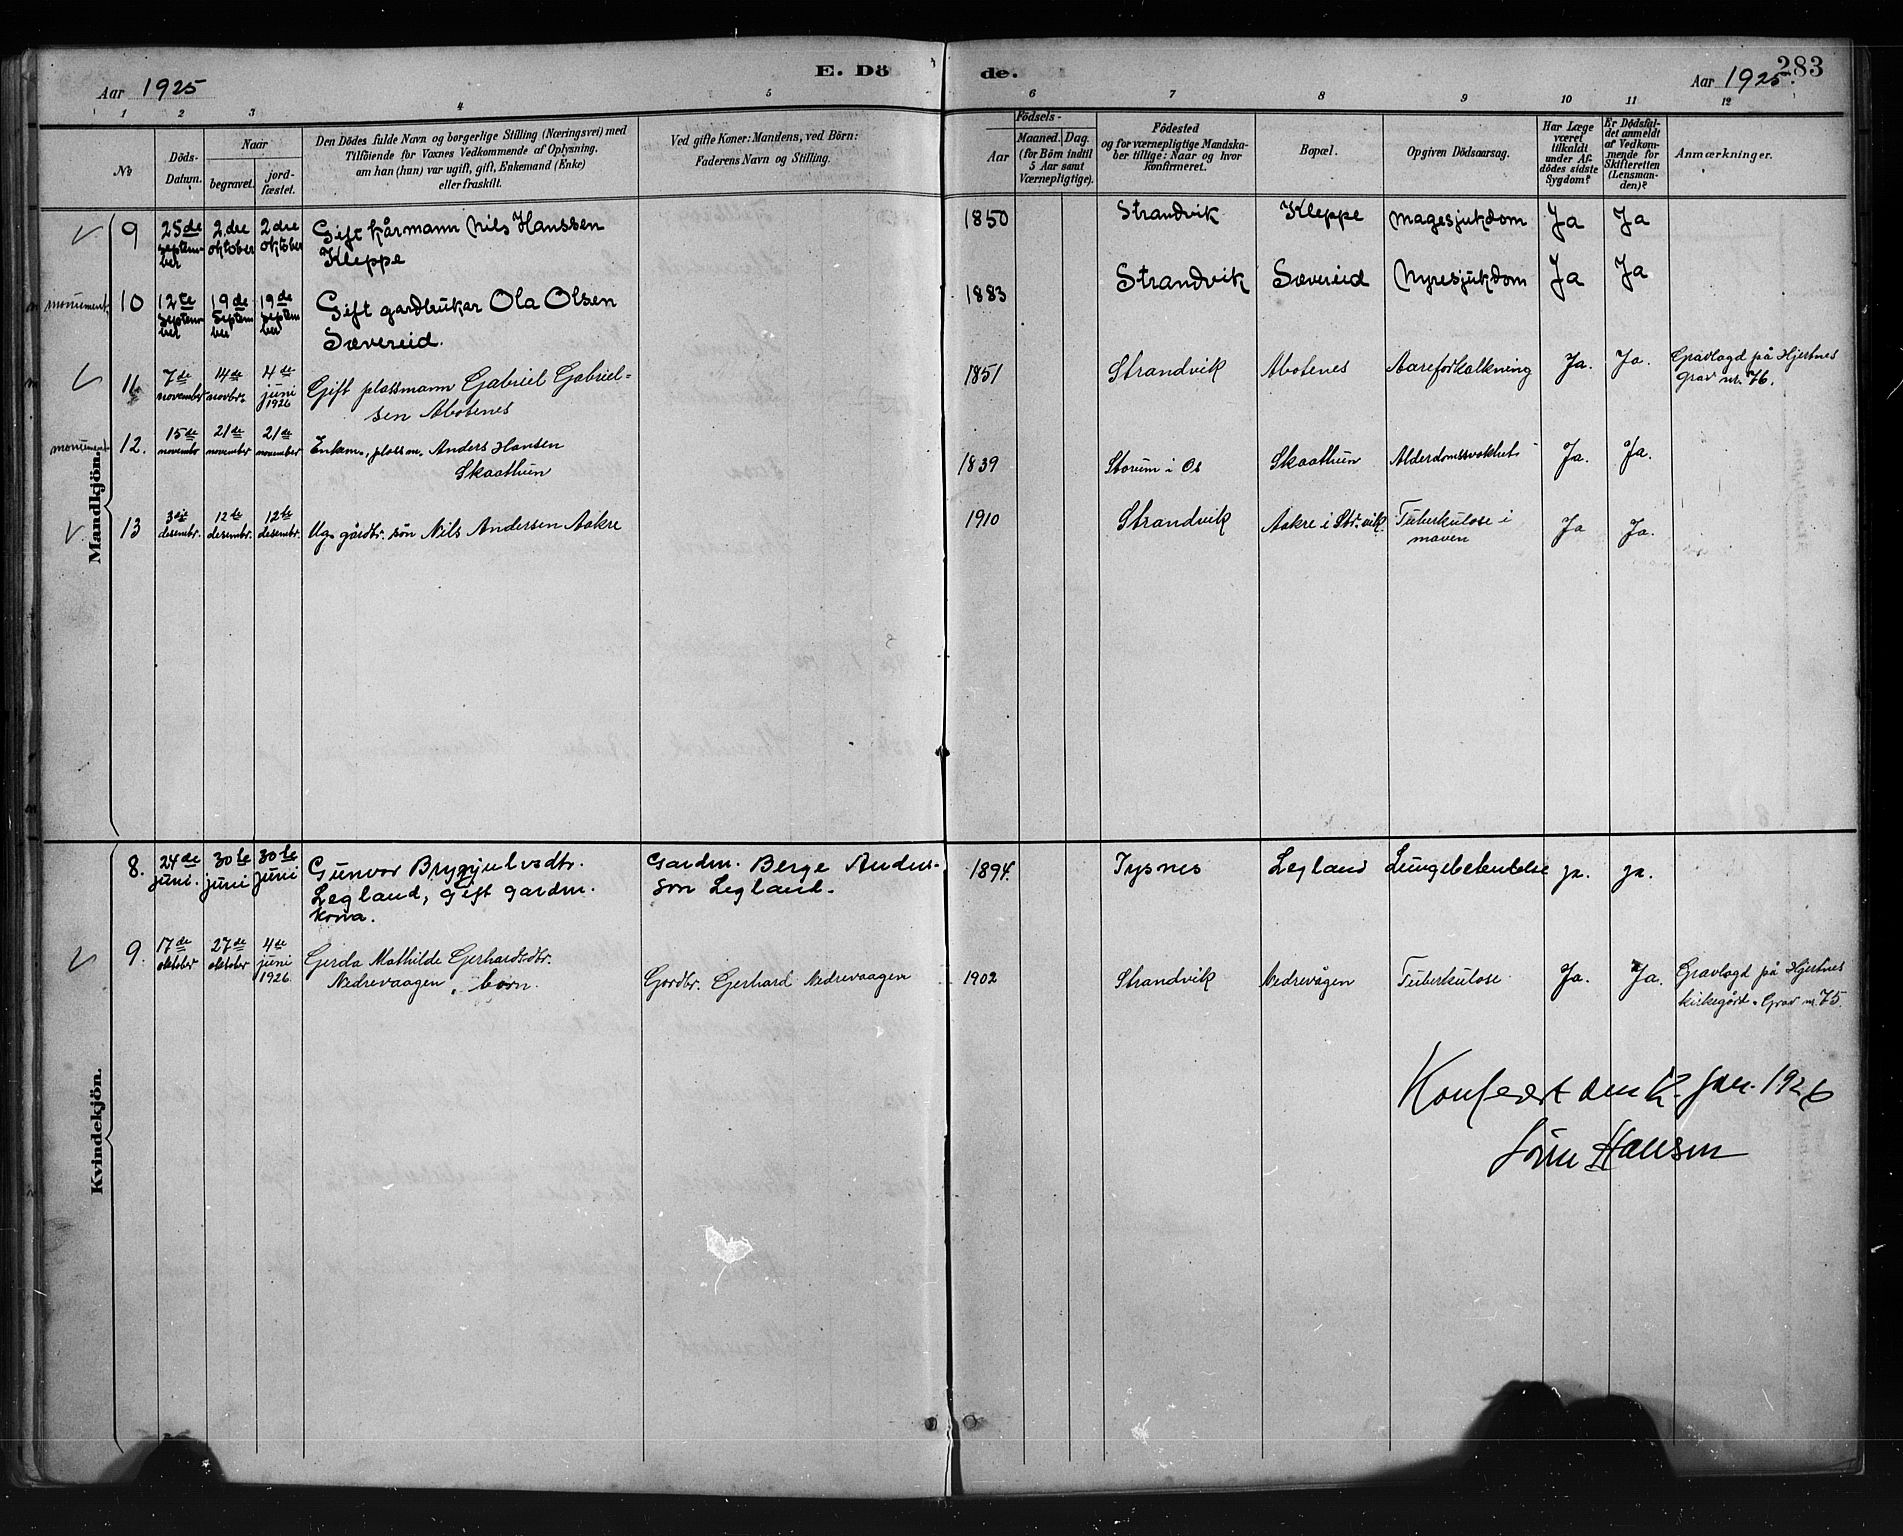 283
E. Dö de.
Aar 1925
Aar 1925.
1 2 3 4 5 6 7 8 9 10 11 12
No
Döds-
Datum.
Naar
begravet.
jord-
fæstet.
Den Dödes fulde Navn og borgerlige Stilling (Næringsvei) med
Tilföiende for Voxnes Vedkommende af Oplysning.
om han (hun) var ugift, gift, Enkemand (Enke)
eller fraskilt.
Ved gifte Koner: Mandens, ved Börn:
Faderens Navn og Stilling.
Födsels-
Aar
Maaned. Dag.
(for Börn indtil
5 Aar samt
Værnepligtige).
Födested
og for værnepligtige Mandska-
ber tillige: Naar og hvor
konfirmeret.
Bopæl.
Opgiven Dödsaarsag.
Har Læge
været
tilkaldt
under Af-
dödes sidste
Sygdom?
Er Dödsfal-
det anmeldt
af Vedkom-
mende for
Skifteretten
(Lensman-
den)?
Anmærkninger.
Mandkjön.
9 25de september 2dre oktober 2dre oktober Gift kårmann Nils Hanssen 1850 Strandvik Kleppe Magesjukdom Ja Ja
Kleppe
monument 10 12te september 19de september 19de september Gift gardbrukar Ola Olsen 1883 Strandvik Sævereid Nyresjukdom Ja Ja
Sævereid.
11 7de november 14de novbr. 4de juni 1926 Gift plassmann Gabriel Gabriel= 1851 Strandvik Abotenes Aareforkalkning Ja. Ja. Gravlagd på Hjertnes
sen Abotenes grav nr. 76.
monument 12. 15de november 21de november 21de november Enkem., plassm. Anders Hansen 1839 i Os Skaathun Ja. Ja.
Skaathun
13 3dje desembr. 12te desembr. 12te desembr. Ug. gårdbr. sön Nils Andersen Aakre 1910 Strandvik Aakre i Str.vik Tuberkulose i Ja Ja.
maven
Kvindekjön.
8. 24de juni. 30te juni 30te juni Gunvor Brynjulvsdtr. Gardm. Berge Ander- 1894. Tysnes Legland Lungebetendelse ja. ja.
Legland, Gift gardm. son Legland.
kona.
9. 17de oktober 27de oktober 4de juni 1926 Gerda Mathilde Gerhardsdtr. Gardbr. Gerhard Nedrevaagen 1902 Strandvik Nedrevågen Tuberkulose Ja. Ja. Gravlagd på Hjertnes
Nedrevaagen, born. kirkegård. Grav nr. 75.
Konferert den 12. jan. 1926
Hansen